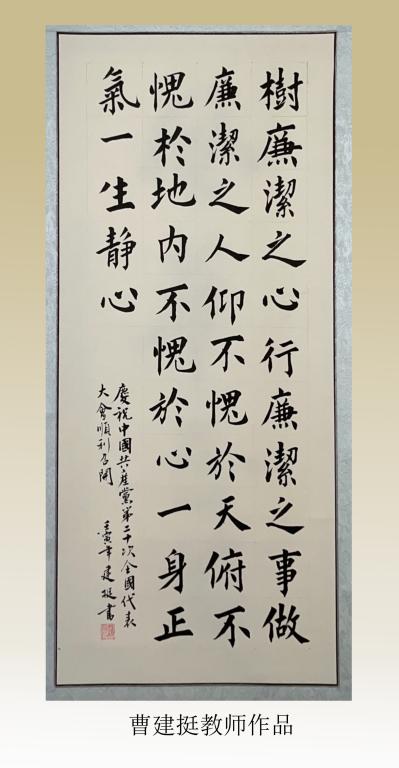 樹廉潔之心行廉潔之事做
廉潔之人仰不愧於天俯不
愧於地內不愧於心一身正
氣一生静心
慶祝中國共產黨第二十次全國代表
大會順利召開
壬寅年建挺書
曹建挺教师作品